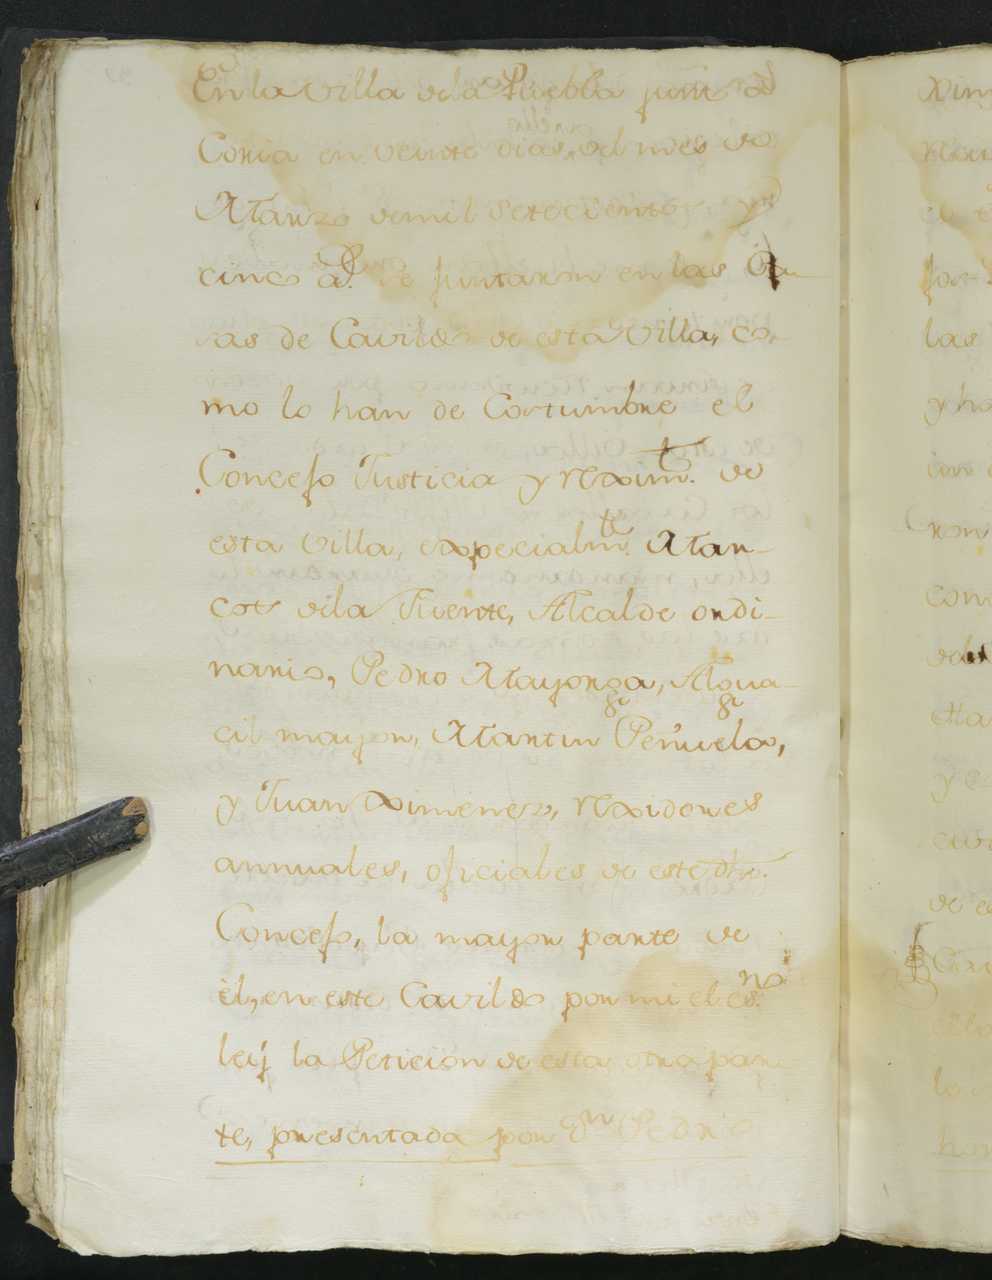 En la Villa de la Puebla junto a
Coria en veinte dias, del mes de
Marzo de mil setecientos y
cinco as. Se juntaron en las Ca-
sas de Cavildo de esta Villa, co-
mo lo han de Costumbre el
Concejo Justicia y Rexim.to de
esta Villa, expecialm.te Mar-
cos de la Fuente, Alcalde ordi-
nario, Pedro Mayorga, Algua-
cil mayor, Martin Peñuela,
y Juan Ximenez, Rexidores
annuales, oficiales de este dho.
Concejo, la mayor parte de
èl, en este Cavildo por mi el es.no
leij la Peticion de esta otra par-
te, presentada por Dn Pedro
las
y ha